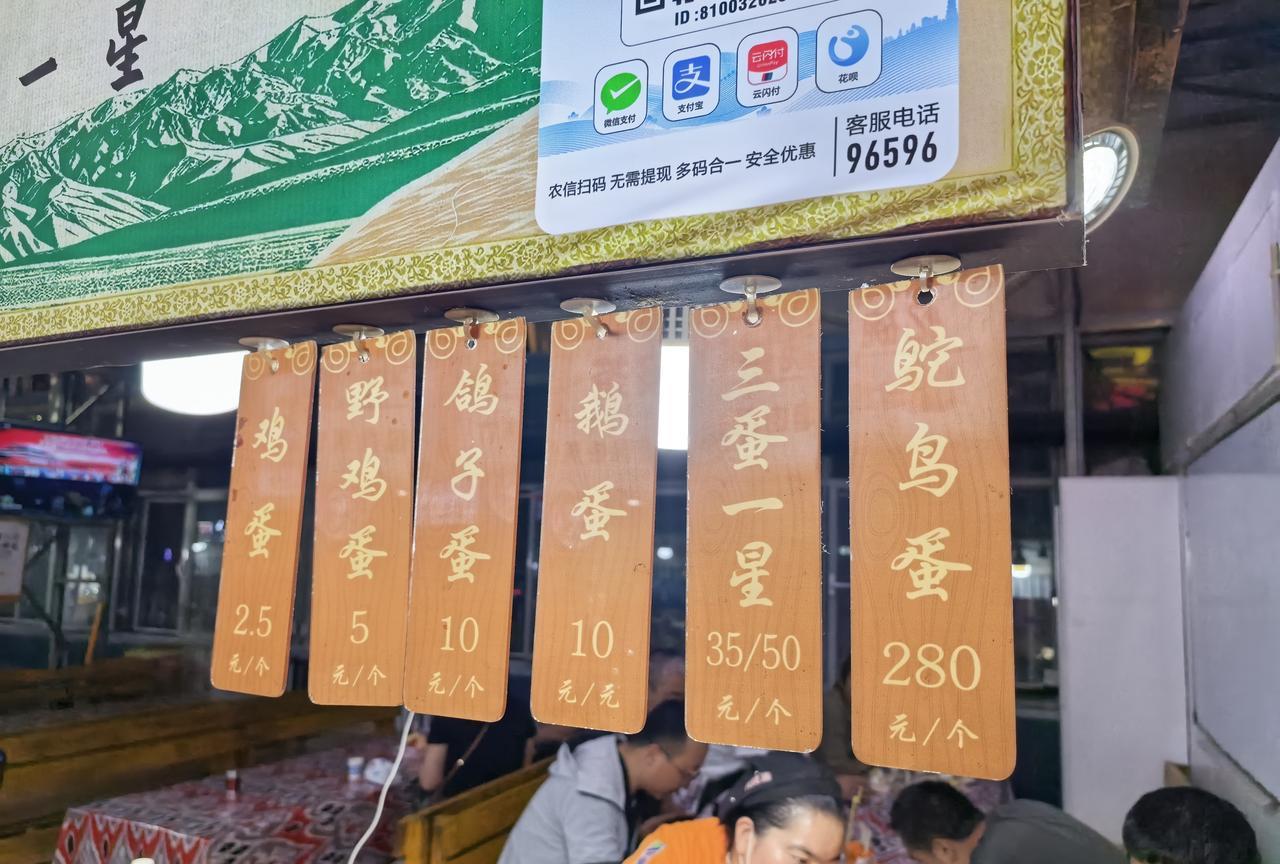 一星
ID :81003202
微信支付
支付宝
云闪付
花呗
农信扫码 无需提现 多码合一 安全优惠
客服电话
96596
鸡蛋
2.5
元/个
野鸡蛋
5
元/个
鸽子蛋
10
元/个
鹅蛋
10
元/元
三蛋一星
35/50
元/个
鸵鸟蛋
280
元/个